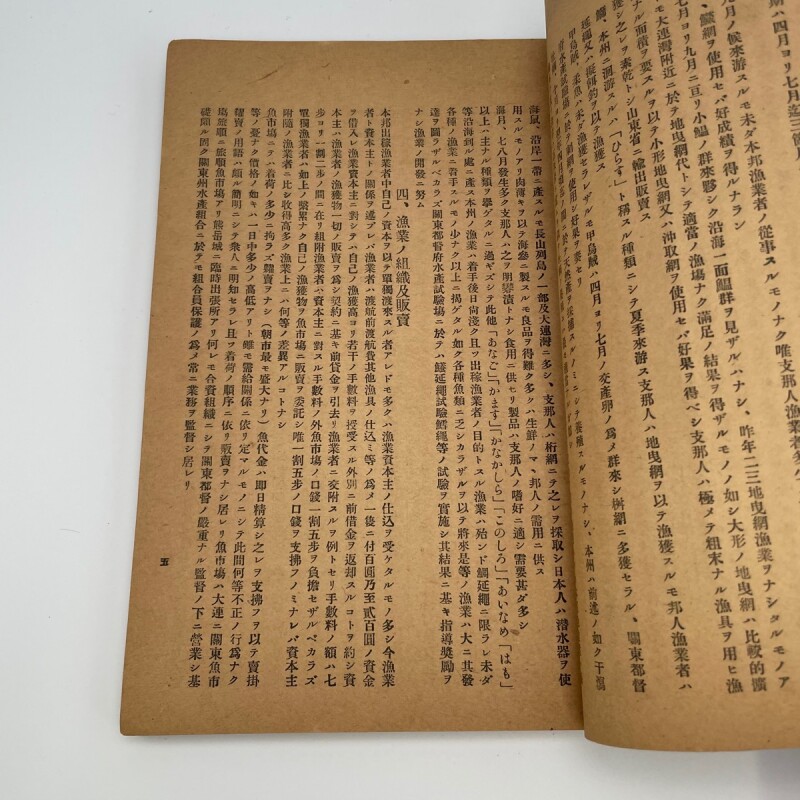 期ハ四月ヨリ七月迄三箇月
九月ノ候來游スルモ未ダ本邦漁業者ノ從事スルモノナク唯支那人漁業者
、鱶網ヲ使用セバ好成績ヲ得ルナラン
七月ヨリ九月ニ亘リ小鰮ノ群來夥シク沿海一面鰮群ヲ見ザルハナシ、昨年二三地曳網漁業ヲナシタルモノア
ルモ大連灣附近ニ於テ地曳網代トシテ適當ノ漁場ナク滿足ノ結果ヲ得ザルモノノ如シ大形ノ地曳網ハ比較的廣
ナル面積ヲ要スルヲ以テ小形地曳網又ハ沖取網ヲ使用セバ好果ヲ得ベシ支那人ハ極メテ粗末ナル漁具ヲ用ヒ漁
獲シ之レヲ素乾トシ山東省ニ輸出販賣ス
鯛、本州ニ洄游スルハ「ひらす」ト稱スル種類ニシテ夏季來游ス支那人ハ地曳網ヲ以テ漁獲スルモ邦人漁業者ハ
延繩又ハ擬餌釣ヲ以テ漁獲ス
甲烏賊、柔魚ハ未ダ漁獲セラレザルモ甲烏賊ハ四月ヨリ七月ノ交產卵ノ爲メ群來シ桝網ニ多獲セラル、關東都督
海鼠、沿岸一帶ニ產スルモ長山列島ノ一部及大連灣ニ多シ、支那人ハ桁網ニテ之レヲ採取シ日本人ハ潜水器ヲ使
用スルモノアリ肉薄キヲ以テ海參ニ製スルモ良品ヲ得難ク多クハ生鮮ノマヽ邦人ノ需用ニ供ス
海月、七八月發生多ク支那人ハ之ヲ明礬漬トナシ食用ニ供セリ製品ハ支那人ノ嗜好ニ適シ需要甚ダ多シ
以上ハ主ナル種類ヲ擧ゲタルニ過ギズシテ此他「あなご」「かます」「かなかしら」「このしろ」「あいなめ」「はも」
等沿海到ル處ニ產ス本州ノ漁業ハ着手後日尙淺ク且ツ出稼漁業者ノ目的トスル漁業ハ殆ンド鯛延繩ニ限ラレ未ダ
各種ノ漁業ニ着手スルモノ少ナク以上ニ揭ゲタル如ク各種魚類ニ乏シカラザルヲ以テ將來是等ノ漁業ハ大ニ其發
達ヲ圖ラザルベカラズ關東都督府水產試驗場ニ於テハ鱶延繩試驗鱈繩等ノ試驗ヲ實施シ其結果ニ基キ指導獎勵ヲ
ナシ漁業ノ開發ニ努ム
四、漁業ノ組織及販賣
本邦出稼漁業者中自己ノ資本ヲ以テ單獨渡來スル者アレドモ多クハ漁業資本主ノ仕込ヲ受ケタルモノ多シ今漁業
者ト資本主トノ關係ヲ述ブレバ漁業者ハ渡航前渡航費其他漁具ノ仕込ミ等ノ爲メ一後ニ付百圓乃至貳百圓ノ資金
ヲ借入レ漁業資本主ニ對シテハ自己ノ漁獲高ヨリ若干ノ手數料ヲ授受スル外別ニ前借金ヲ返却スルコトヲ約シ資
本主ハ漁業者ノ漁獲物一切ノ販賣ヲ爲シ契約ニ基キ前貸金ヲ引去リ漁業者ニ交附スルヲ例トセリ手數料ノ額ハ七
步ヨリ一割二步ノ間ニ在リ組附漁業者ハ資本主ニ對スル手數料ノ外魚市場ノ口錢一割五步ヲ負擔セザルベカラズ
單獨漁業者ハ如上ノ繫累ナク自己ノ漁獲物ヲ魚市場ニ販賣ヲ委託シ唯一割五步ノ口錢ヲ支拂フノミナレバ資本主
附隨ノ漁業者ニ比シ收得高多ク漁業上ニハ何等ノ差異アルコトナシ
魚市場ニテハ着荷ノ多少ニ拘ラズ糶賣ヲナシ（朝市最モ盛大ナリ）魚代金ハ即日精算シ之レヲ支拂フヲ以テ賣掛
等ノ憂ナク價格ノ如キハ一日中多少ノ高低アリト雖モ需給關係ニ依リ定マルモノニシテ此間何等不正ノ行爲ナク
糶賣ノ用語ハ頗ル簡明ニシテ衆人ニ明知セラレ且ツ着荷ノ順序ニ依リ販賣ヲナシ居レリ魚市場ハ大連ニ關東魚市
場旅順ニ旅順魚市場アリ熊岳城ニ臨時出張所アリ何レモ合資組織ニシテ關東都督ノ嚴重ナル監督ノ下ニ營業シ基
礎頗ル固ク關東州水產組合ニ於テモ組合員保護ノ爲メ常ニ業務ヲ監督シ居レリ
五